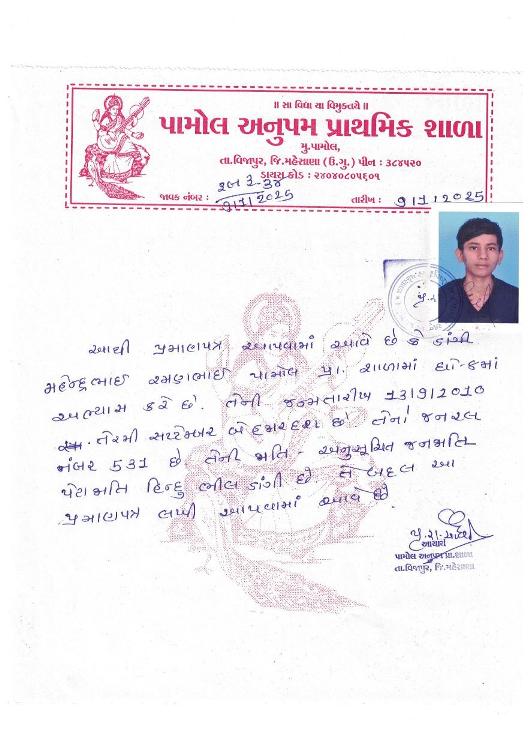 ॥ સા વિદ્યા યા વિમુક્તયે ॥
પામોલ અનુપમ પ્રાથમિક શાળા
મુ.પામોલ,
તા.વિજાપુર, જિ.મહેસાણા (ઉ.ગુ.) પીન : ૩૮૪૫૨૦
ડાયસ કોડ : ૨૪૦૪૦૮૦૫૬૦૧
જાવક નંબર : 9/1/2025
તારીખ : 9/1/2025
આથી પ્રમાણપત્ર આપવામાં આવે છે કે ડાંગી
મહેન્દ્રભાઈ રમણભાઈ પામોલ પ્રા. શાળામાં ધો-૮માં
અભ્યાસ કરે છે. તેની જન્મતારીખ 13/9/2010
તેરમી સપ્ટેમ્બર બે હજાર દશ છે. તેનો જનરલ
નંબર 531 છે. તેની જાતિ - અનુસૂચિત જનજાતિ
પેટા જાતિ હિન્દુ ભીલ ડાંગી છે. તે બદલ આ
પ્રમાણપત્ર લખી આપવામાં આવે છે.
આચાર્ય
પામોલ અનુપમ પ્રા.શાળા
તા.વિજાપુર, જિ.મહેસાણા